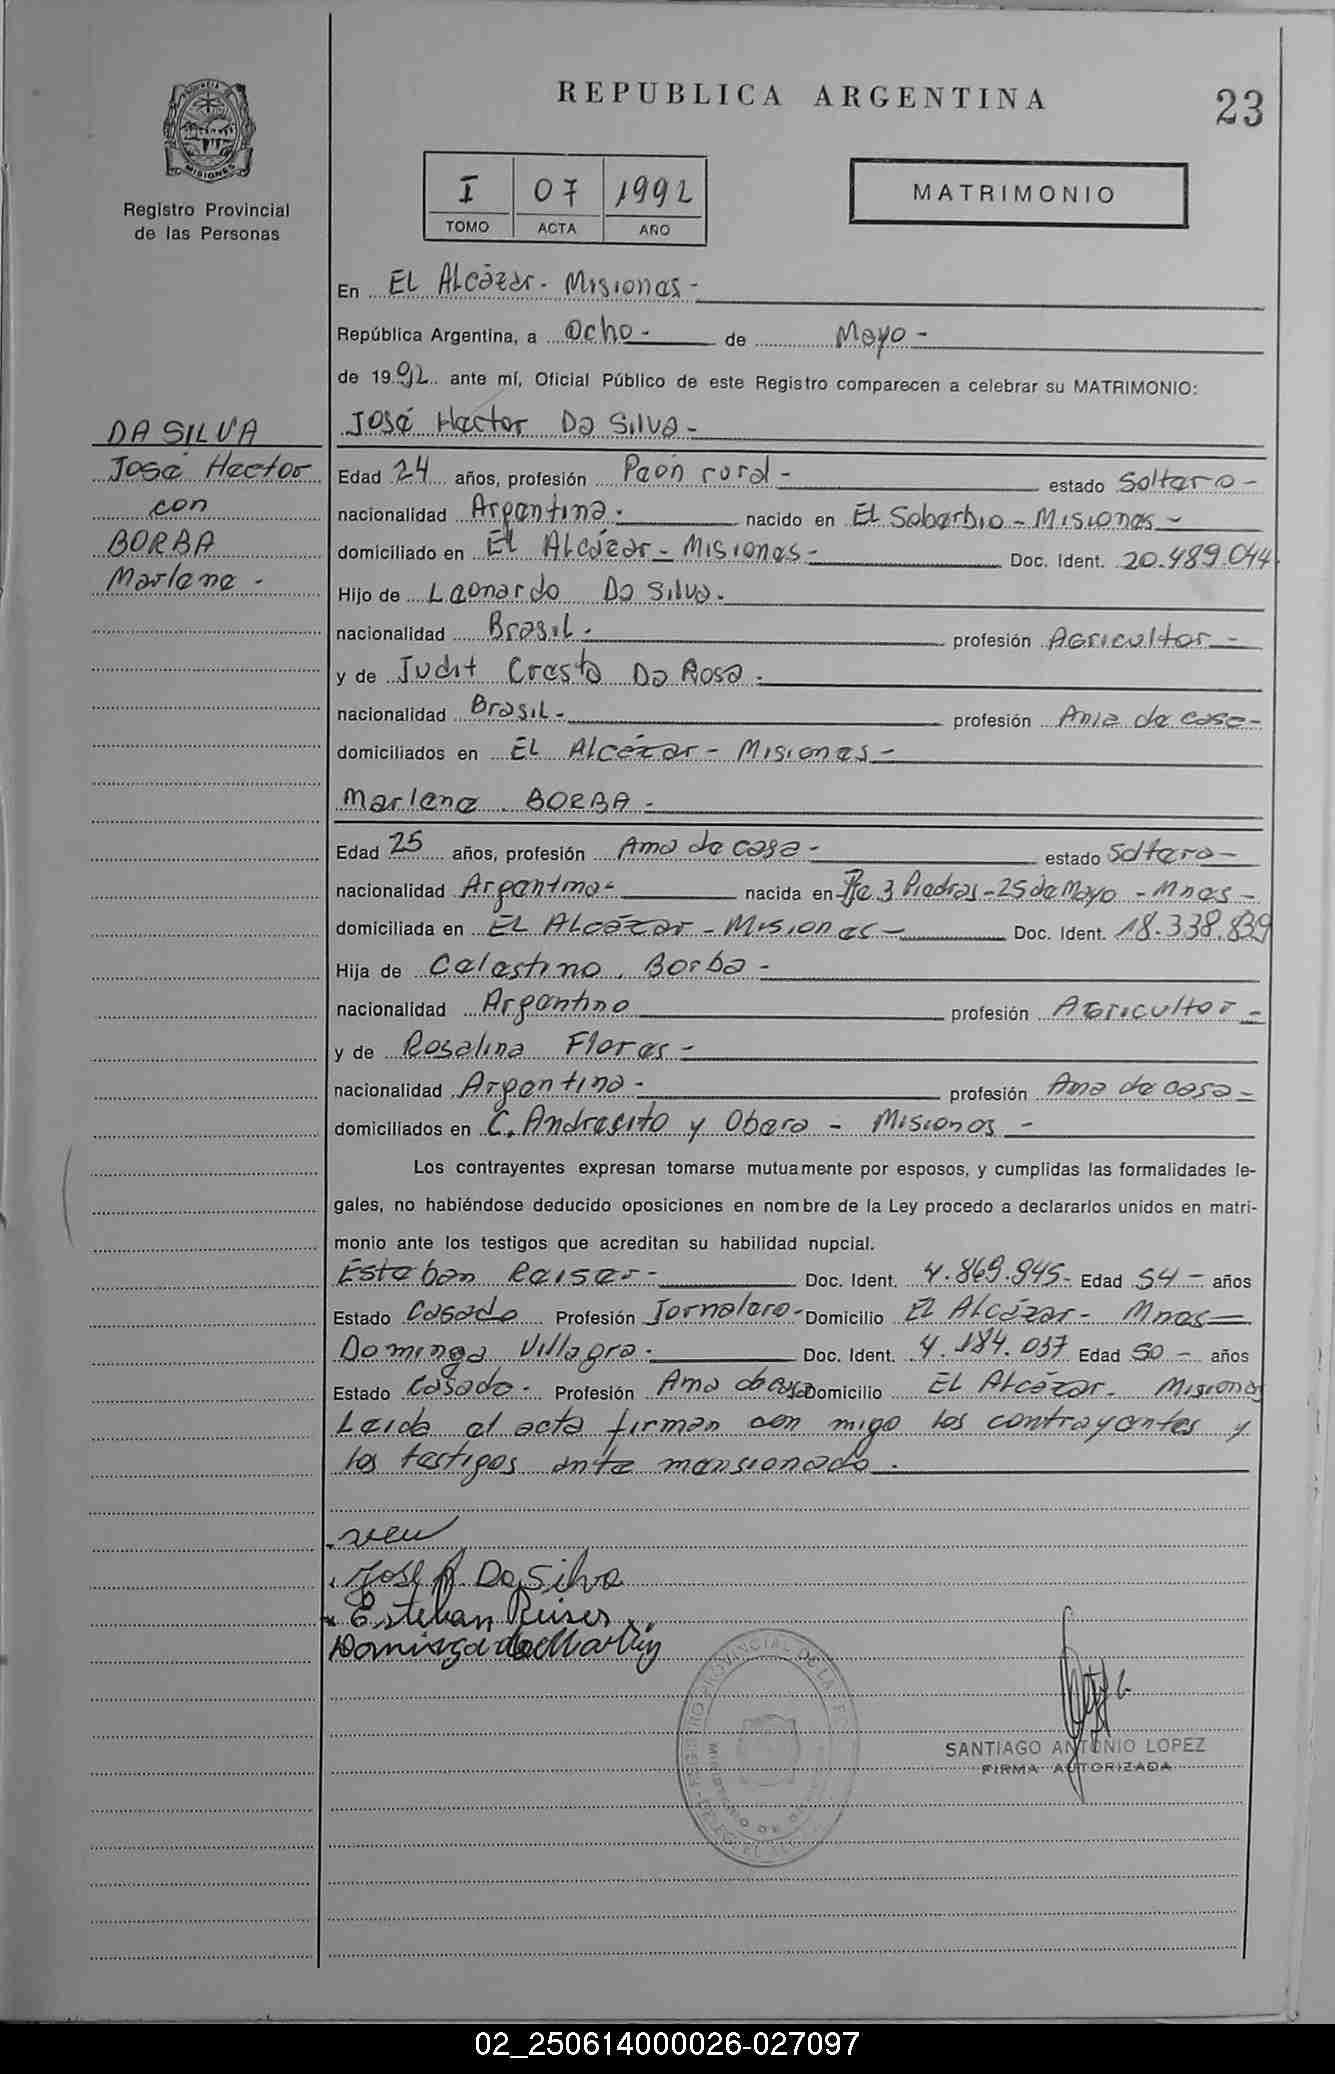 REPUBLICA ARGENTINA
23
PROVINCIA
MISIONES
Registro Provincial
de las Personas
I 07 1992
TOMO ACTA AÑO
MATRIMONIO
En El Alcázar - Misiones -
República Argentina, a Ocho - de Mayo -
de 1992 ante mí, Oficial Público de este Registro comparecen a celebrar su MATRIMONIO:
DA SILVA
José Hector
con
BORBA
Marlene -
José Hector Da Silva -
Edad 24 años, profesión Peón rural - estado Soltero -
nacionalidad Argentina - nacido en El Soberbio - Misiones -
domiciliado en El Alcázar - Misiones - Doc. Ident. 20.489.044
Hijo de Leonardo Da Silva.
nacionalidad Brasil - profesión Agricultor -
y de Judit Cresta Da Rosa -
nacionalidad Brasil - profesión Ama de casa -
domiciliados en El Alcázar - Misiones -
Marlene BORBA -
Edad 25 años, profesión Ama de casa - estado Soltera -
nacionalidad Argentina - nacida en Pje. 3 Piedras - 25 de Mayo - Mnes -
domiciliada en El Alcázar - Misiones - Doc. Ident. 18.338.839
Hija de Celestino Borba -
nacionalidad Argentino profesión Agricultor -
y de Rosalina Flores -
nacionalidad Argentina - profesión Ama de casa -
domiciliados en C. Andresito y Obera - Misiones -
Los contrayentes expresan tomarse mutuamente por esposos, y cumplidas las formalidades le-
gales, no habiéndose deducido oposiciones en nombre de la Ley procedo a declararlos unidos en matri-
monio ante los testigos que acreditan su habilidad nupcial.
Esteban Reiser - Doc. Ident. 4.869.945 - Edad 54 - años
Estado Casado Profesión Jornalero - Domicilio El Alcázar - Mnes -
Dominga Villagra - Doc. Ident. 4.184.037 Edad 50 - años
Estado Casada - Profesión Ama de casa Domicilio El Alcázar - Misiones
Leida el acta firman con migo los contrayentes y
los testigos ante mensionado.
José H. Da Silva
Esteban Reiser
Dominga de
REGISTRO PROVINCIAL DE LAS
SANTIAGO ANTONIO LOPEZ
FIRMA AUTORIZADA
02_250614000026-027097